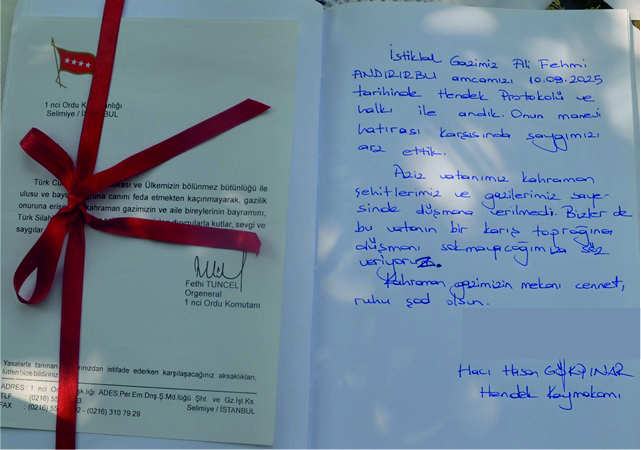 1 nci Ordu K
Selimiye / İSTANBUL
Türk Cu ve Ülkemizin bölünmez bütünlüğü ile
ulusu ve bay uğruna canını feda etmekten kaçınmayarak, gazilik
onuruna eriş kahraman gazimizin ve aile bireylerinin bayramını,
Türk Silah duygularla kutlar, sevgi ve
saygılar
Fethi TUNCEL
Orgeneral
1 nci Ordu Komutanı
Yasalarla tanınan istifade ederken karşılaşacağınız aksaklıkları,
lütfen bize bildiriniz
ADRES : 1 nci Or lığı ADES.Per.Em.Dnş.Ş.Md.lüğü Şht. ve Gz.İşl.Ks.
TLF : (0216) 55 3 Selimiye / İSTANBUL
FAX : (0216) 55 2 - (0216) 310 79 29
İstiklal Gazimiz Ali Fehmi
ANDIRIRBU amcamızı 10.09.2025
tarihinde Hendek Protokolü ve
halkı ile andık. Onun manevi
hatırası karşısında saygımızı
arz ettik.
Aziz vatanımız kahraman
şehitlerimiz ve gazilerimiz saye-
sinde düşmana verilmedi. Bizler de
bu vatanın bir karış toprağına
düşmanı sokmayacağımıza söz
veriyoruz.
Kahraman gazimizin mekanı cennet,
ruhu şad olsun.
Hacı Hasan GÖKPINAR
Hendek Kaymakamı